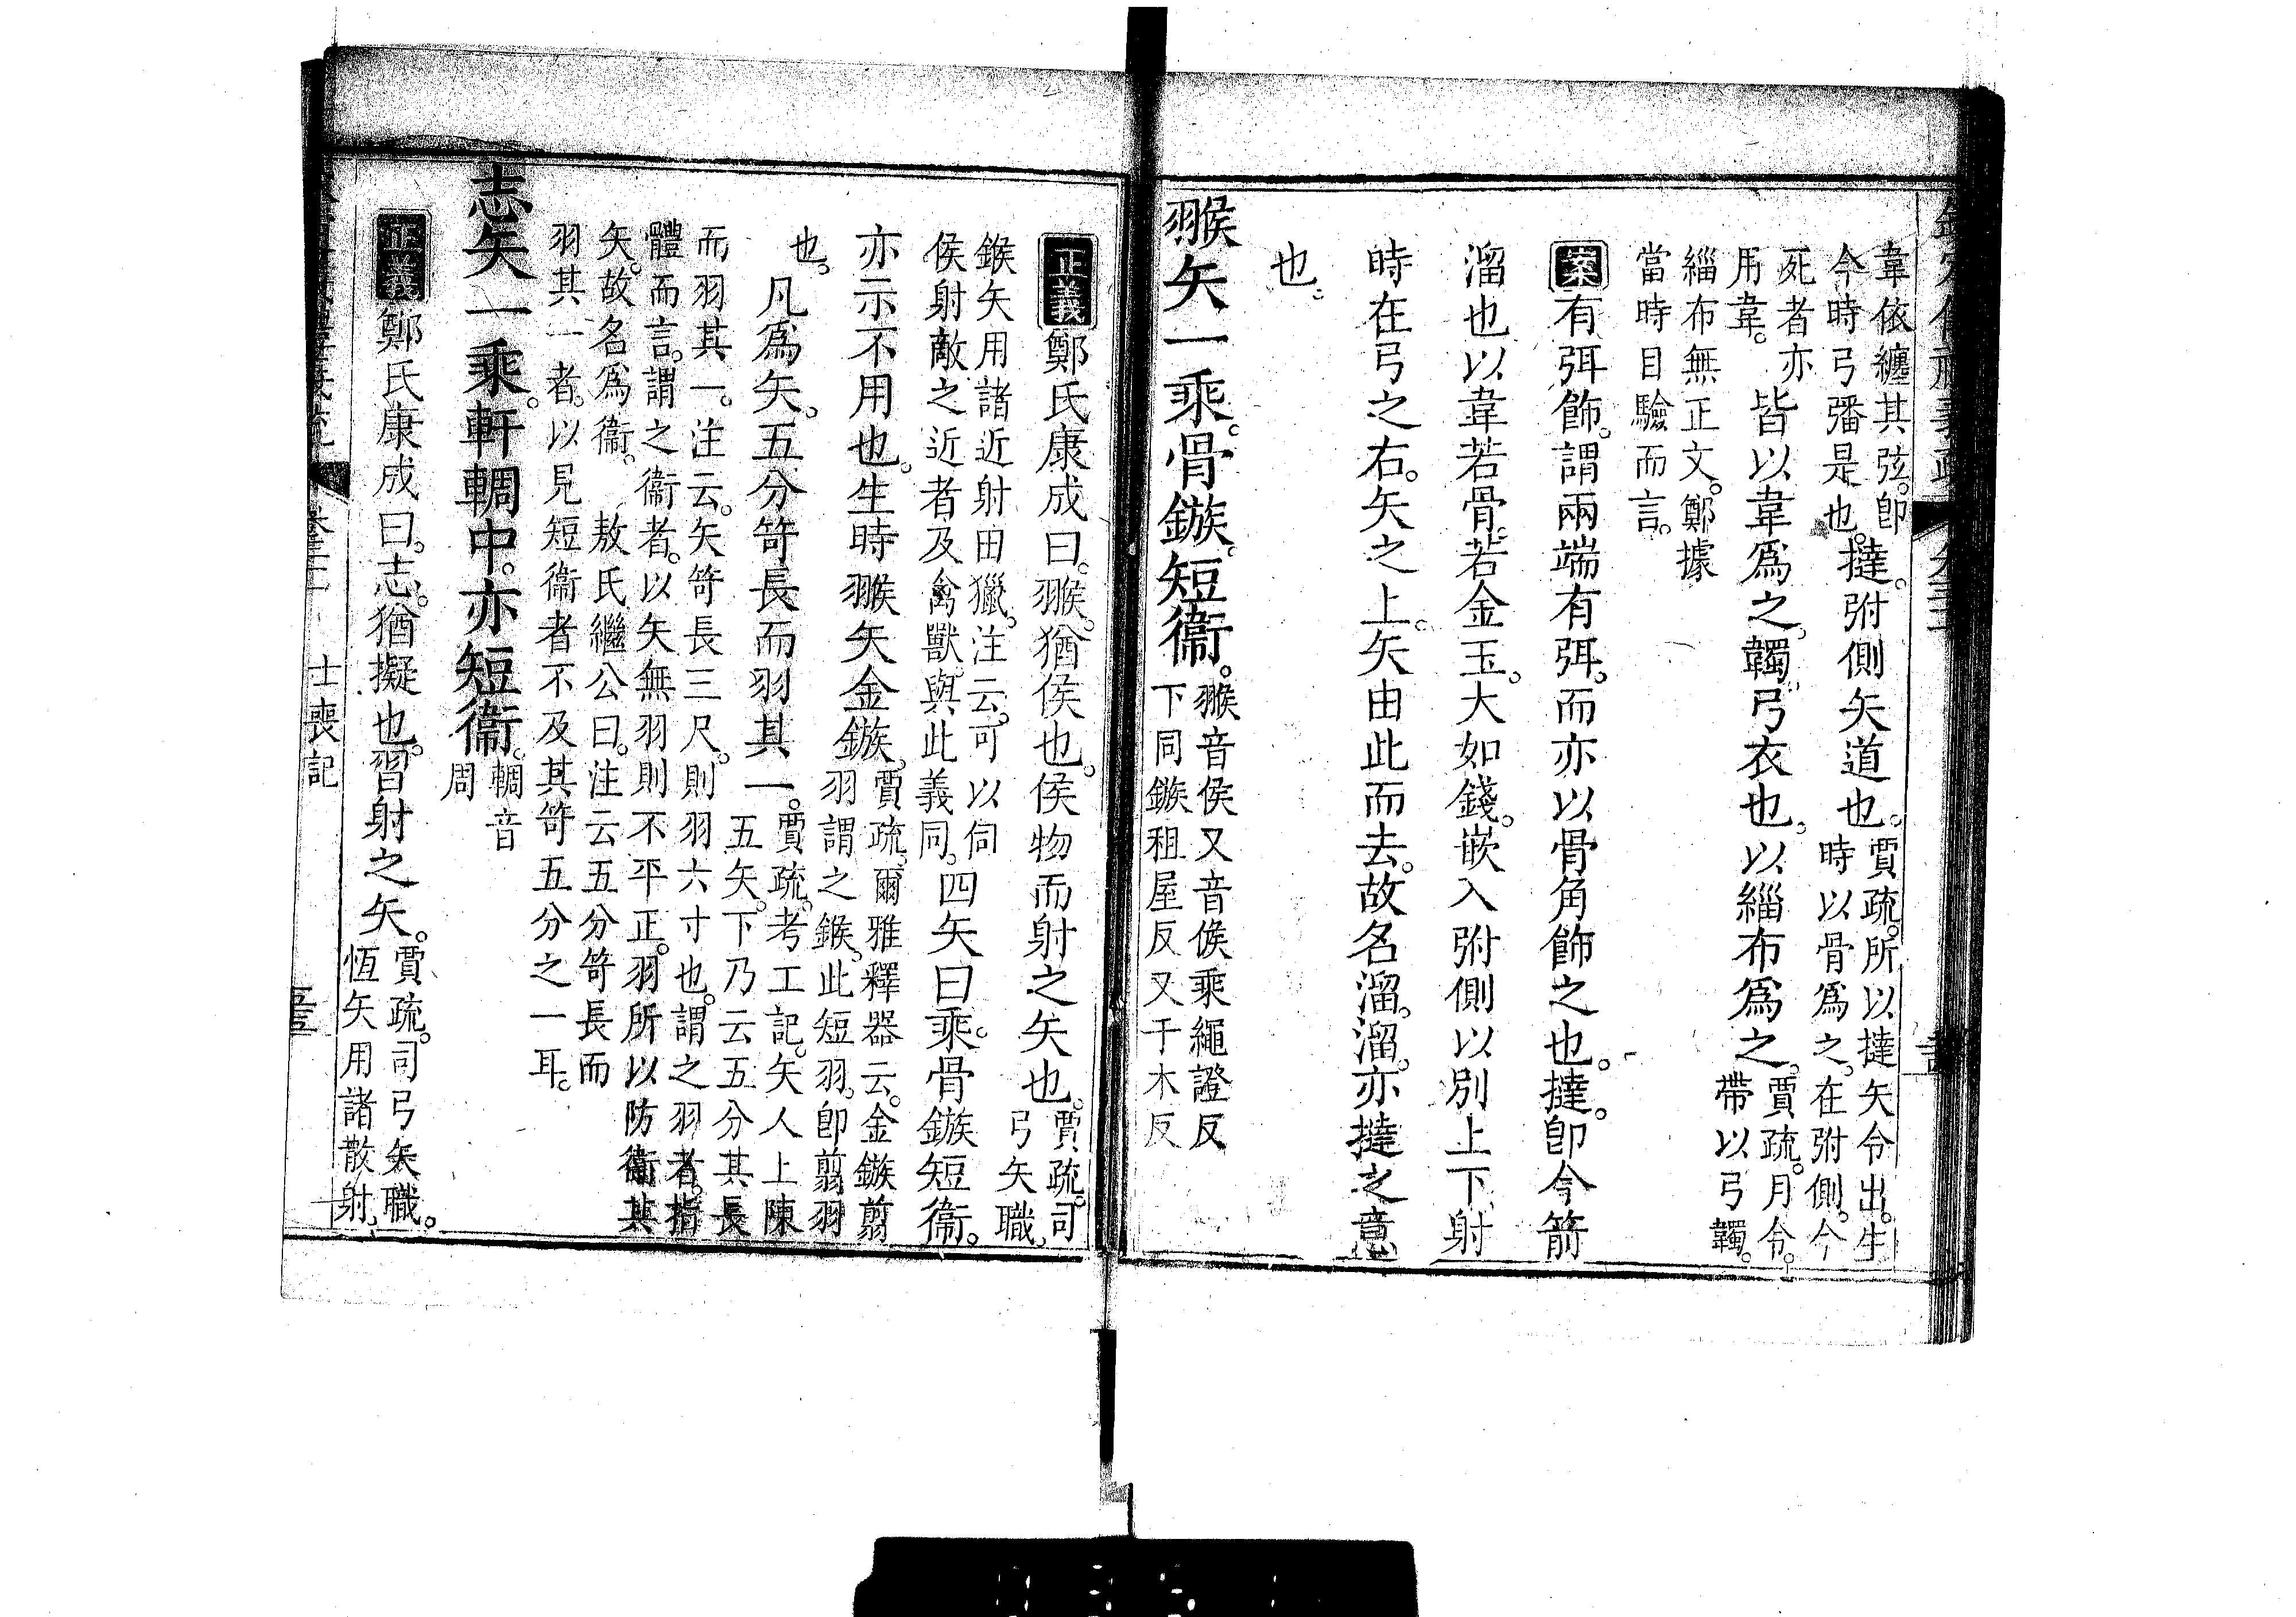 韋依纏其弦。卽
今時弓㢖是也。撻。弣側矢道也。賈疏。所以撻矢令出。生
時以骨爲之。在弣側。今
死者亦
用韋。皆以韋爲之。韣。弓衣也。以緇布爲之。賈疏。月令。
帶以弓韣。
緇布無正文。鄭據
當時目驗而言。
案有弭飾。謂兩端有弭。而亦以骨角飾之也。撻。卽今箭
溜也以韋若骨。若金玉。大如錢。嵌入弣側以別上下。射
時在弓之右。矢之上。矢由此而去。故名溜。溜。亦撻之意
也。
翭矢一乘。骨鏃。短衞。翭音侯又音候乘繩證反
下同鏃租屋反又于木反
正義鄭氏康成曰。翭。猶侯也。侯物而射之矢也。賈疏。司
弓矢職。
鍭矢用諸近射田獵。注云。可以伺
侯射敵之近者及禽獸。與此義同。四矢曰乘。骨鏃短衞。
亦示不用也。生時翭矢金鏃。賈疏。爾雅釋器云。金鏃翦
羽謂之鍭。此短羽。卽翦羽
也。凡爲矢。五分笴長而羽其一。賈疏。考工記。矢人上陳
五矢。下乃云五分其長
而羽其一。注云。矢笴長三尺。則羽六寸也。謂之羽者。指
體而言。謂之衞者。以矢無羽則不平正。羽所以防衞其
矢。故名爲衞。 敖氏繼公曰。注云五分笴長而
羽其一者。以見短衞者不及其笴五分之一耳。
志矢一乘。軒輖中。亦短衞。輖音
周
正義鄭氏康成曰。志。猶擬也。習射之矢。賈疏。司弓矢職。
恆矢用諸散射、
士喪記